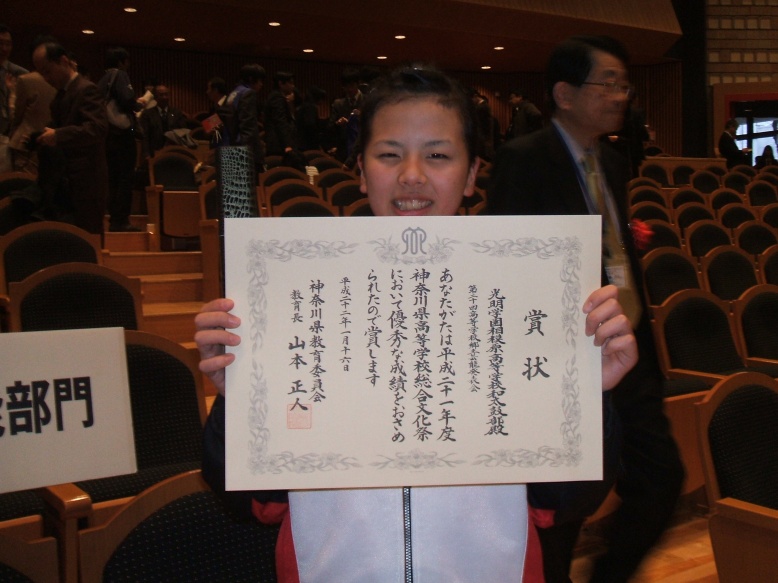 賞状
光明学園相模原高等学校和太鼓部殿
あなたがたは平成二十一年度
神奈川県高等学校総合文化祭
において優秀な成績をおさめ
られたので賞します
平成二十二年一月十六日
神奈川県教育委員会
教育長 山本正人
部門